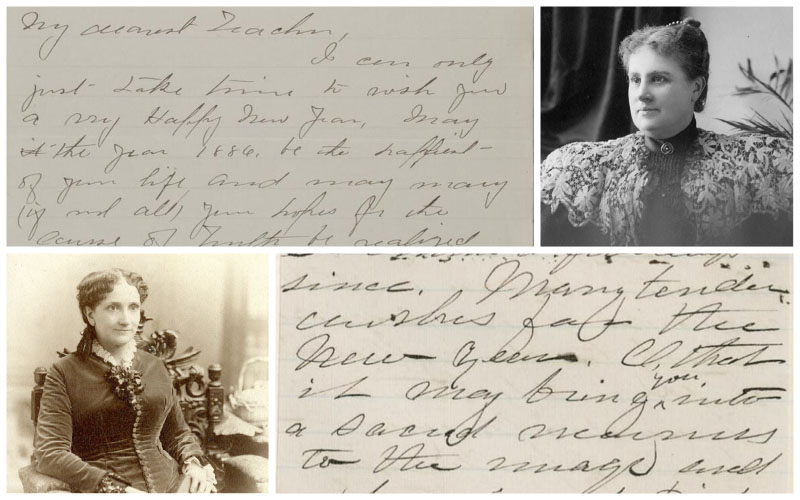 My dearest Teacher,
I can only
just take time to wish you
a very Happy New Year, May
the year 1886. be the happiest
of your life, and may many
(if not all) your hopes for the
cause of Truth be realized
since. Many tender
wishes for the
New Year. O, that
it may bring you into
a sacred nearness
to the image and